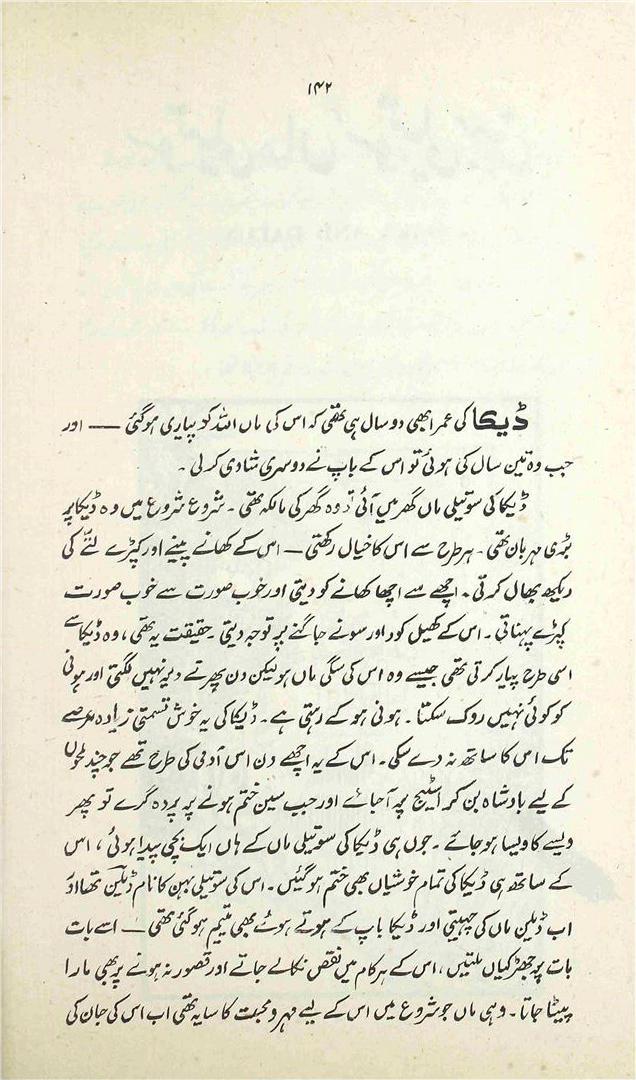 ۱۴۲
ڈیکا کی عمر ابھی دو سال ہی تھی کہ اس کی ماں اللہ کو پیاری ہو گئی — اور
جب وہ تین سال کی ہوئی تو اس کے باپ نے دوسری شادی کر لی ۔
ڈیکا کی سوتیلی ماں گھر میں آئی تو وہ گھر کی مالکہ تھی ۔ شروع شروع میں وہ ڈیکا پر
بڑی مہربان تھی ۔ ہر طرح سے اس کا خیال رکھتی — اس کے کھانے پینے اور کپڑے لتّے کی
دیکھ بھال کرتی ۔ اچھے سے اچھا کھانے کو دیتی اور خوب صورت سے خوب صورت
کپڑے پہناتی ۔ اس کے کھیل کود اور سونے جاگنے پر توجہ دیتی ۔ حقیقت یہ تھی ، وہ ڈیکا سے
اسی طرح پیار کرتی تھی جیسے وہ اس کی سگی ماں ہو لیکن دن پھرتے دیر نہیں لگتی اور ہونی
کو کوئی نہیں روک سکتا ۔ ہونی ہو کے رہتی ہے ۔ ڈیکا کی یہ خوش قسمتی زیادہ عرصے
تک اس کا ساتھ نہ دے سکی ۔ اس کے یہ اچھے دن اس آدمی کی طرح تھے جو چند لمحوں
کے لیے بادشاہ بن کر اسٹیج پر آ جائے اور جب سین ختم ہونے پر پردہ گرے تو پھر
ویسے کا ویسا ہو جائے ۔ جوں ہی ڈیکا کی سوتیلی ماں کے ہاں ایک بچی پیدا ہوئی ، اس
کے ساتھ ہی ڈیکا کی تمام خوشیاں بھی ختم ہو گئیں ۔ اس کی سوتیلی بہن کا نام ڈیلین تھا اور
اب ڈیلین ماں کی چہیتی اور ڈیکا باپ کے ہوتے ہوئے بھی یتیم ہو گئی تھی — اسے بات
بات پر جھڑکیاں ملتیں ، اس کے ہر کام میں نقص نکالے جاتے اور قصور نہ ہونے پر بھی مارا
پیٹا جاتا ۔ وہی ماں جو شروع میں اس کے لیے مہر و محبت کا سایہ تھی اب اس کی جان کی